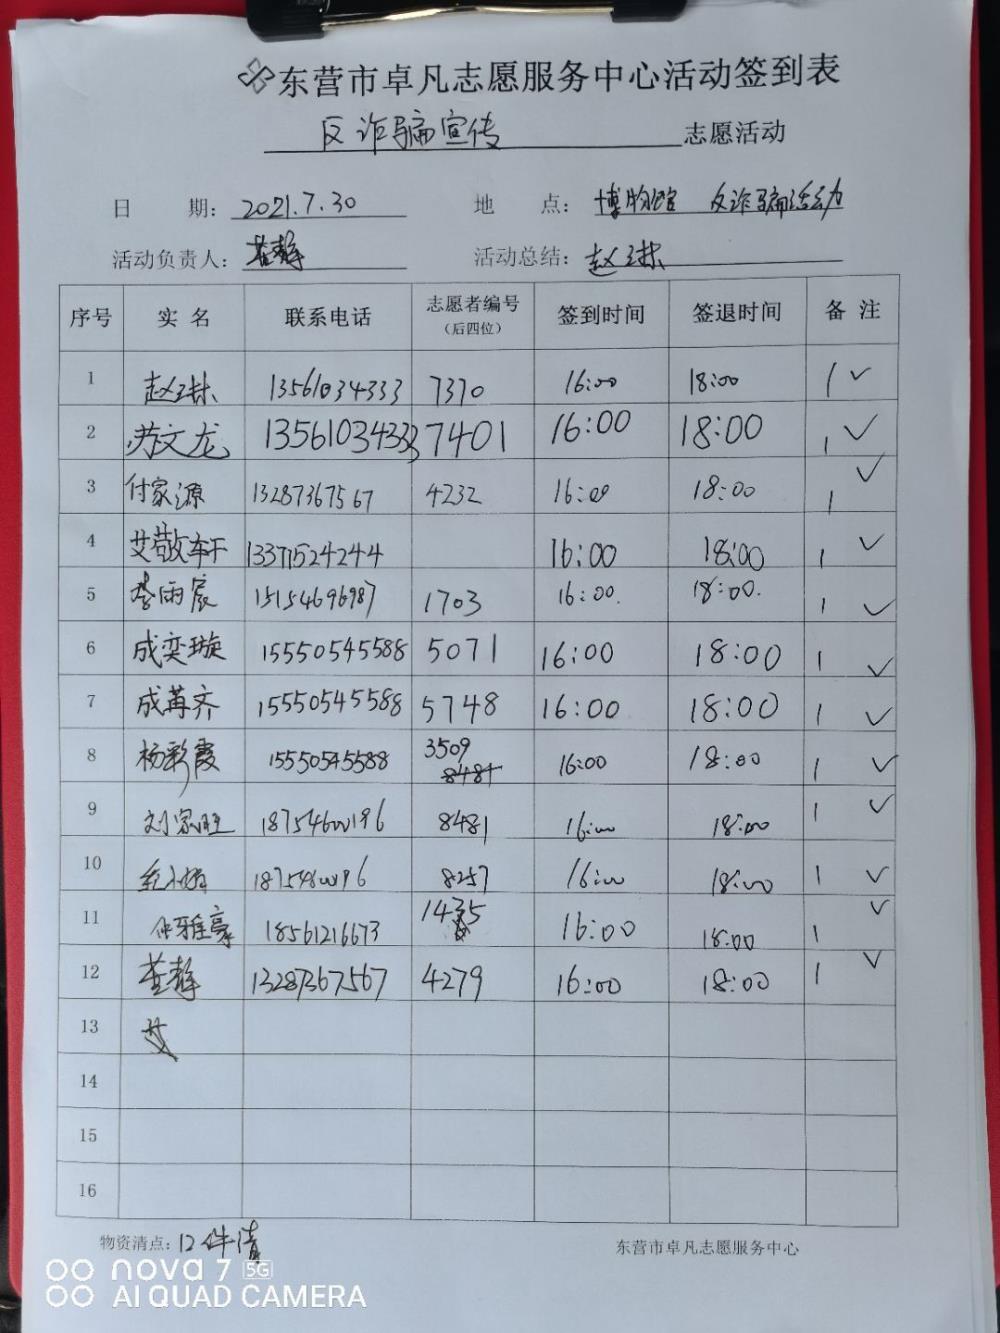 东营市卓凡志愿服务中心活动签到表
反诈骗宣传 志愿活动
日 期: 2021.7.30 地 点: 博物馆 反诈骗活动
活动负责人: 董静 活动总结: 赵
序号 实 名 联系电话 志愿者编号 (后四位) 签到时间 签退时间 备 注
1 赵 13561034333 7370 16:00 18:00 1 ✓
2 苏文龙 13561034333 7401 16:00 18:00 1 ✓
3 付家源 13287367567 4232 16:00 18:00 1 ✓
4 艾敬轩 13371524244 16:00 18:00 1 ✓
5 李雨宸 15154696987 1703 16:00. 18:00. 1 ✓
6 成奕璇 15550545588 5071 16:00 18:00 1 ✓
7 成苒齐 15550545588 5748 16:00 18:00 1 ✓
8 杨彩霞 15550545588 3509 8481 16:00 18:00 1 ✓
9 刘家旺 18754600196 8481 16:00 18:00 1 ✓
10 18754600196 8257 16:00 18:00 1 ✓
11 仲雅豪 18561216673 1435 16:00 18:00 1 ✓
12 董静 13287367567 4279 16:00 18:00 1 ✓
13
14
15
16
物资清点: 12件清 东营市卓凡志愿服务中心
nova 7 5G
AI QUAD CAMERA